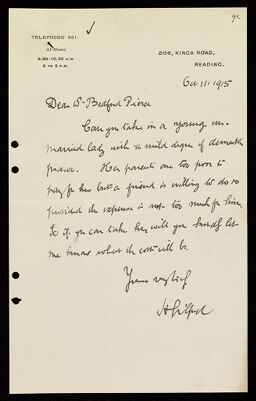 9c
TELEPHONE 561.
At Home
8.30-10.30 A.M.
2 TO 3 P.M.
205, KINGS ROAD,
READING.
Oct 11. 1915
Dear Dr Bedford Pierce
Can you take in a young un-
married lady with a mild degree of dementia
praecox. Her parents are too poor to
pay for her but a friend is willing to do so
provided the expense is not too much for him.
So if you can take her will you kindly let
me know what the cost will be.
Yours very truly
H Gilford